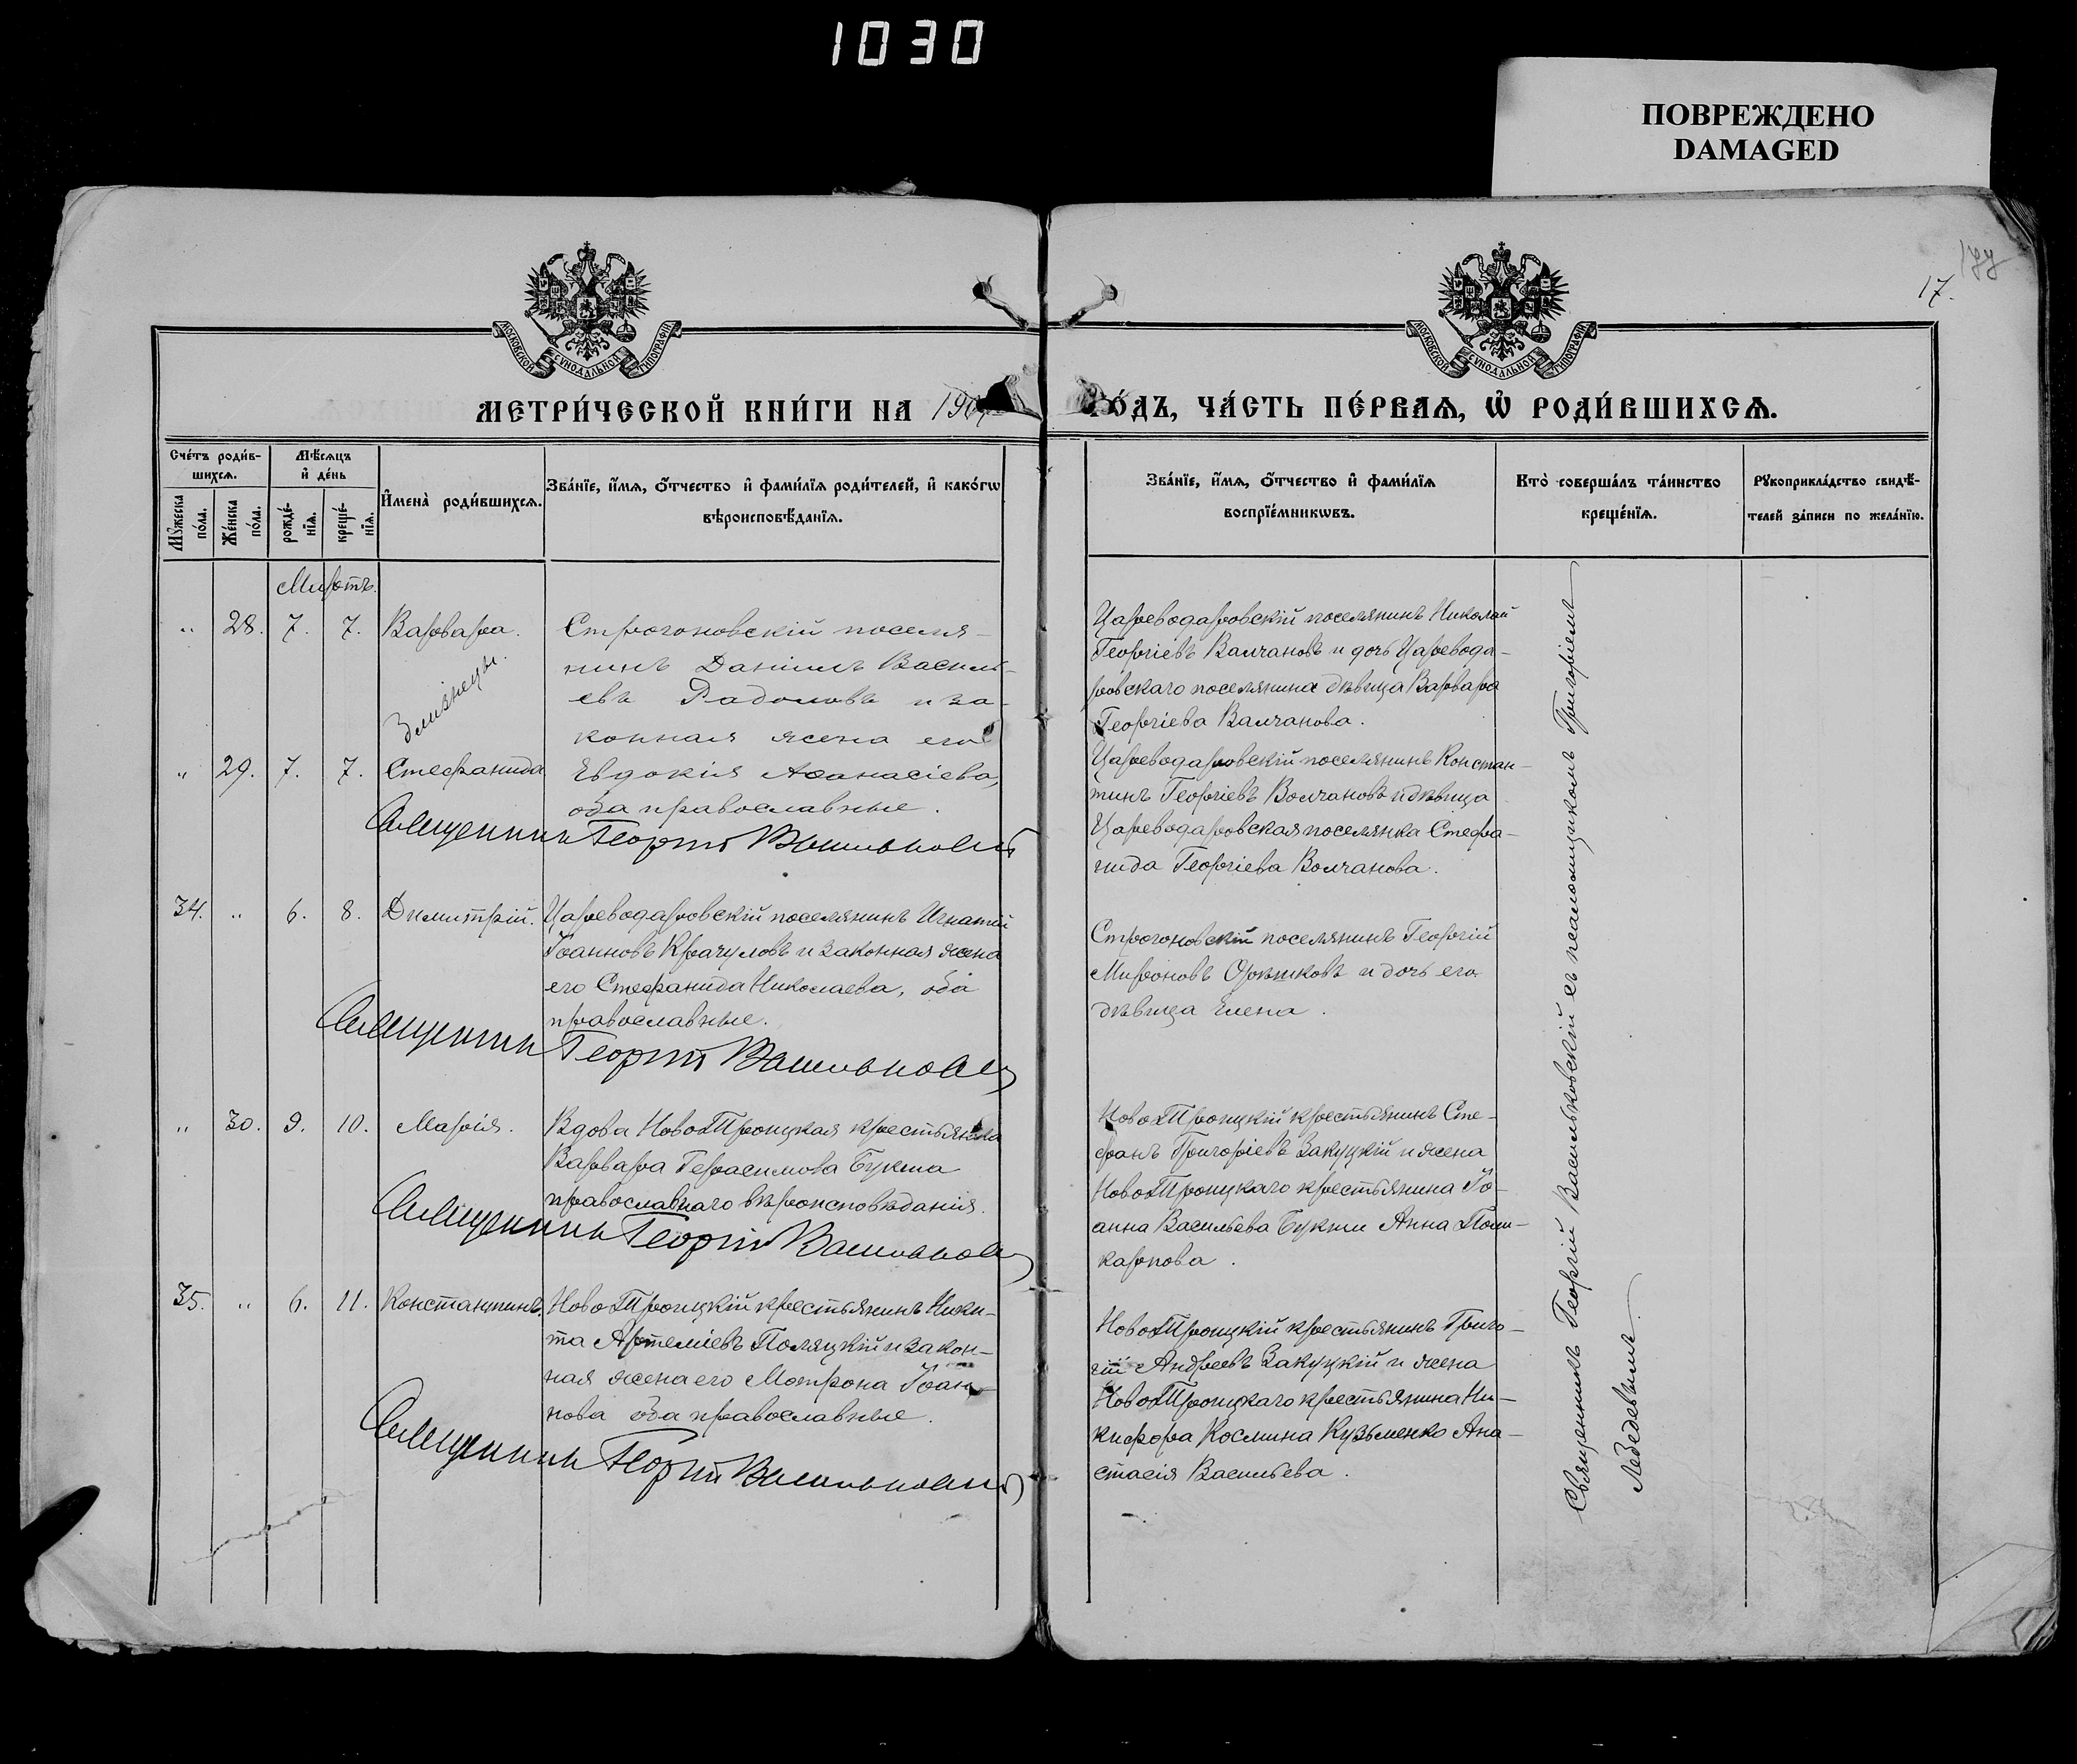 1030
ПОВРЕЖДЕНО
DAMAGED
17.
177
МОСКОВСКОЙ СѴНОДАЛЬНОЙ ТИПОГРАФІИ
МОСКОВСКОЙ СѴНОДАЛЬНОЙ ТИПОГРАФІИ
МЕТРИ́ЧЕСКОЙ КНИ́ГИ НА 190
ГО́ДЪ, ЧА́СТЬ ПЕ́РВАѦ, Ѡ҆ РОДИ́ВШИХСѦ.
Сче́тъ роди́в-
шихсѧ.
Мꙋ́жеска по́ла.
Же́нска по́ла.
Мѣ́сѧцъ
и҆ де́нь
рожде́-нїѧ.
креще́-нїѧ.
И҆мена̀ роди́вшихсѧ.
Зва́нїе, и҆́мѧ, ѻ҆́тчество и҆ фами́лїѧ роди́телей, и҆ како́гѡ
вѣроисповѣ́данїѧ.
Зва́нїе, и҆́мѧ, ѻ҆́тчество и҆ фами́лїѧ
воспрїе́мникѡвъ.
Кто̀ соверша́лъ та́инство
креще́нїѧ.
Рꙋкоприкла́дство свидѣ́-
телей за́писи по жела́нїю.
Мартъ.
" 28. 7. 7. Варвара.
Строгоновскій поселя-
нинъ Даніилъ Василь-
евъ Радоловъ и за-
конная жена его
Близнецы.
" 29. 7. 7. Стефанида
Евдокія Аѳанасіева,
оба православные.
Священникъ Георгій Васильковскій
Цареводаровскій поселянинъ Николай
Георгіевъ Валчановъ и дочь Царевода-
ровскаго поселянина дѣвица Варвара
Георгіева Валчанова.
Цареводаровскій поселянинъ Констан-
тинъ Георгіевъ Волчановъ и дѣвица
Цареводаровская поселянка Стефа-
нида Георгіева Волчанова.
34. " 6. 8. Димитрій.
Цареводаровскій поселянинъ Игнатій
Іоанновъ Крачуловъ и законная жена
его Стефанида Николаева, оба
православные.
Священникъ Георгій Васильковскій
Строгоновскій поселянинъ Георгій
Мироновъ Орѣшковъ и дочь его
дѣвица Елена.
" 30. 9. 10. Марія.
Вдова НовоТроицкая крестьянка
Варвара Герасимова Букша
православнаго вѣроисповѣданія.
Священникъ Георгій Васильковскій
НовоТроицкій крестьянинъ Сте-
фанъ Григоріевъ Закуцкій и жена
НовоТроицкаго крестьянина Іо-
анна Васильева Букши Анна Поли-
карпова.
35. " 6. 11. Константинъ.
НовоТроицкій крестьянинъ Ники-
та Артеміевъ Поляцкій и закон-
ная жена его Матрона Іоан-
нова оба православные.
Священникъ Георгій Васильковскій
НовоТроицкій крестьянинъ Григо-
рій Андреевъ Закуцкій и жена
НовоТроицкаго крестьянина Ни-
кифора Космина Кузьменко Ана-
стасія Васильева.
Священникъ Георгій Васильковскій съ псаломщикомъ Григоріемъ
Лебедевымъ.